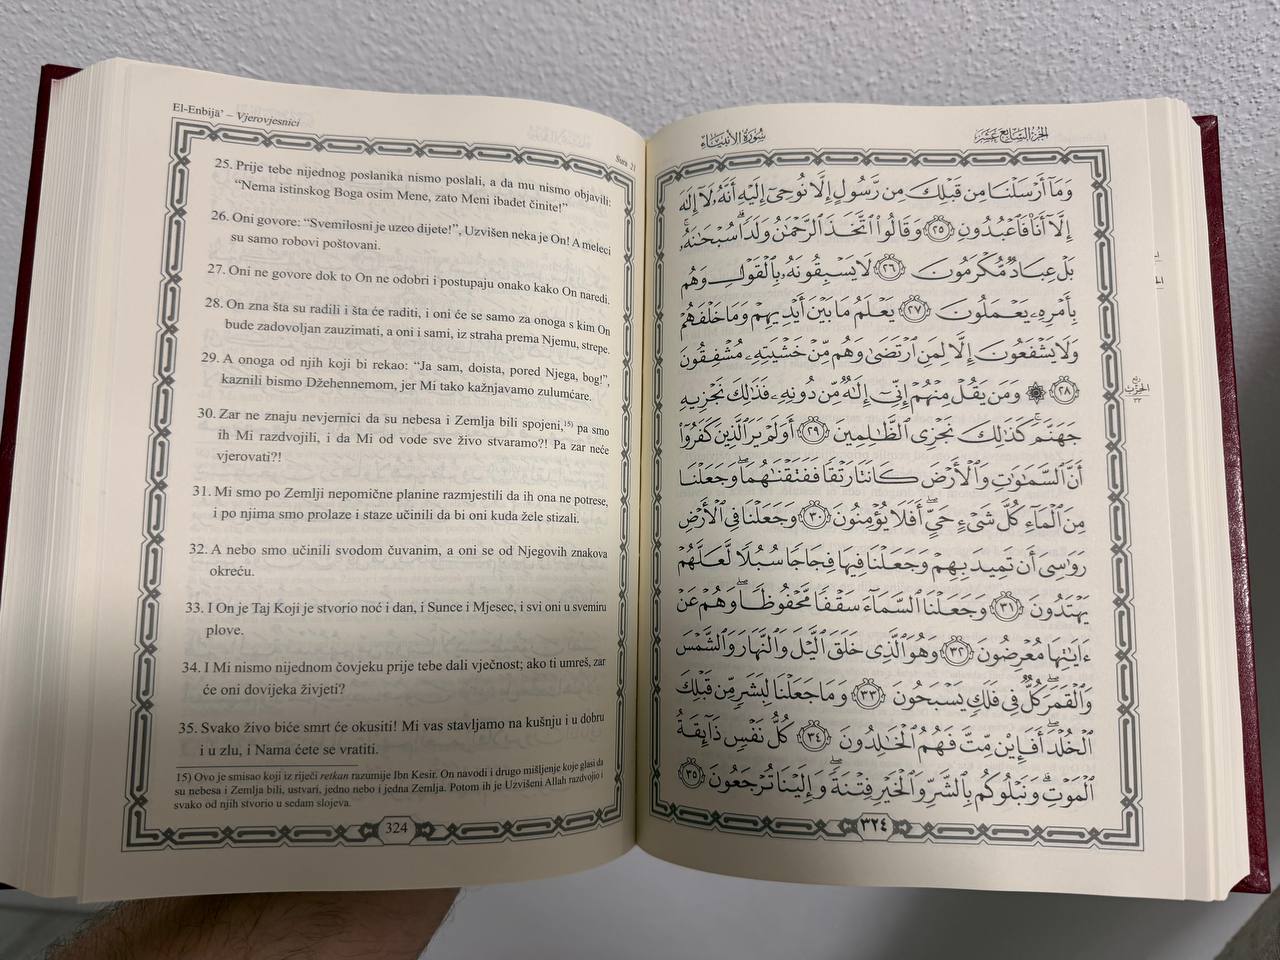 El-Enbijā’ – Vjerovjesnici
Sura 21
25. Prije tebe nijednog poslanika nismo poslali, a da mu nismo objavili:
“Nema istinskog Boga osim Mene, zato Meni ibadet činite!”
26. Oni govore: “Svemilosni je uzeo dijete!”, Uzvišen neka je On! A meleci
su samo robovi poštovani.
27. Oni ne govore dok to On ne odobri i postupaju onako kako On naredi.
28. On zna šta su radili i šta će raditi, i oni će se samo za onoga s kim On
bude zadovoljan zauzimati, a oni i sami, iz straha prema Njemu, strepe.
29. A onoga od njih koji bi rekao: “Ja sam, doista, pored Njega, bog!”,
kaznili bismo Džehennemom, jer Mi tako kažnjavamo zulumćare.
30. Zar ne znaju nevjernici da su nebesa i Zemlja bili spojeni,15) pa smo
ih Mi razdvojili, i da Mi od vode sve živo stvaramo?! Pa zar neće
vjerovati?!
31. Mi smo po Zemlji nepomične planine razmjestili da ih ona ne potrese,
i po njima smo prolaze i staze učinili da bi oni kuda žele stizali.
32. A nebo smo učinili svodom čuvanim, a oni se od Njegovih znakova
okreću.
33. I On je Taj Koji je stvorio noć i dan, i Sunce i Mjesec, i svi oni u svemiru
plove.
34. I Mi nismo nijednom čovjeku prije tebe dali vječnost; ako ti umreš, zar
će oni dovijeka živjeti?
35. Svako živo biće smrt će okusiti! Mi vas stavljamo na kušnju i u dobru
i u zlu, i Nama ćete se vratiti.
15) Ovo je smisao koji iz riječi retkan razumije Ibn Kesir. On navodi i drugo mišljenje koje glasi da
su nebesa i Zemlja bili, ustvari, jedno nebo i jedna Zemlja. Potom ih je Uzvišeni Allah razdvojio i
svako od njih stvorio u sedam slojeva.
324
الجزء السابع عشر
سورة الأنبياء
وَمَآ أَرْسَلْنَا مِن قَبْلِكَ مِن رَّسُولٍ إِلَّا نُوحِىٓ إِلَيْهِ أَنَّهُۥ لَآ إِلَٰهَ
إِلَّآ أَنَا۠ فَٱعْبُدُونِ ٢٥ وَقَالُوا۟ ٱتَّخَذَ ٱلرَّحْمَٰنُ وَلَدًا ۗ سُبْحَٰنَهُۥ ۚ
بَلْ عِبَادٌ مُّكْرَمُونَ ٢٦ لَا يَسْبِقُونَهُۥ بِٱلْقَوْلِ وَهُم
بِأَمْرِهِۦ يَعْمَلُونَ ٢٧ يَعْلَمُ مَا بَيْنَ أَيْدِيهِمْ وَمَا خَلْفَهُمْ
وَلَا يَشْفَعُونَ إِلَّا لِمَنِ ٱرْتَضَىٰ وَهُم مِّنْ خَشْيَتِهِۦ مُشْفِقُونَ
٢٨ ۞ وَمَن يَقُلْ مِنْهُمْ إِنِّىٓ إِلَٰهٌ مِّن دُونِهِۦ فَذَٰلِكَ نَجْزِيهِ
جَهَنَّمَ ۚ كَذَٰلِكَ نَجْزِى ٱلظَّٰلِمِينَ ٢٩ أَوَلَمْ يَرَ ٱلَّذِينَ كَفَرُوٓا۟
أَنَّ ٱلسَّمَٰوَٰتِ وَٱلْأَرْضَ كَانَتَا رَتْقًا فَفَتَقْنَٰهُمَا ۖ وَجَعَلْنَا
مِنَ ٱلْمَآءِ كُلَّ شَىْءٍ حَىٍّ ۖ أَفَلَا يُؤْمِنُونَ ٣٠ وَجَعَلْنَا فِى ٱلْأَرْضِ
رَوَٰسِىَ أَن تَمِيدَ بِهِمْ وَجَعَلْنَا فِيهَا فِجَاجًا سُبُلًا لَّعَلَّهُمْ
يَهْتَدُونَ ٣١ وَجَعَلْنَا ٱلسَّمَآءَ سَقْفًا مَّحْفُوظًا ۖ وَهُمْ عَنْ
ءَايَٰتِهَا مُعْرِضُونَ ٣٢ وَهُوَ ٱلَّذِى خَلَقَ ٱلَّيْلَ وَٱلنَّهَارَ وَٱلشَّمْسَ
وَٱلْقَمَرَ ۖ كُلٌّ فِى فَلَكٍ يَسْبَحُونَ ٣٣ وَمَا جَعَلْنَا لِبَشَرٍ مِّن قَبْلِكَ
ٱلْخُلْدَ ۖ أَفَإِي۟ن مِّتَّ فَهُمُ ٱلْخَٰلِدُونَ ٣٤ كُلُّ نَفْسٍ ذَآئِقَةُ
ٱلْمَوْتِ ۗ وَنَبْلُوكُم بِٱلشَّرِّ وَٱلْخَيْرِ فِتْنَةً ۖ وَإِلَيْنَا تُرْجَعُونَ ٣٥
ربع
الحزب
٣٣
٣٢٤